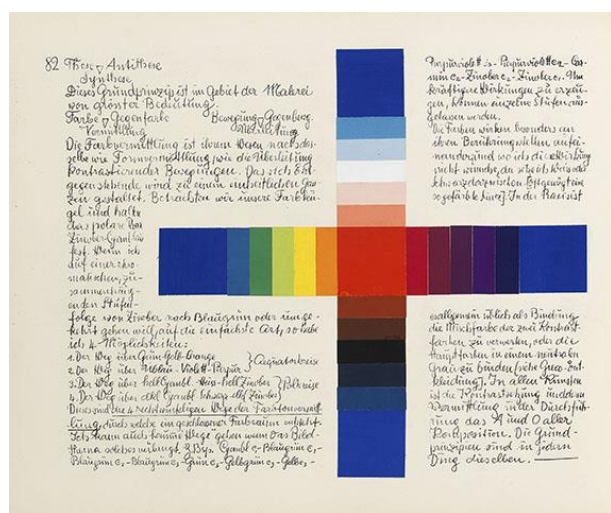 82 These ▽ Antithese
Synthese
Dieses Grundprinzip ist im Gebiet der Malerei
von grösster Bedeutung.
Farbe ▽ Gegenfarbe Bewegung ▽ Gegenbeweg.
Vermittlung Vermittlung
Die Farbvermittlung ist ihrem Wesen nach das-
selbe wie Formvermittlung, wie die Überleitung
kontrastierender Bewegungen. Das sich Ent-
gegenstehende wird zu einem einheitlichen Gan-
zen gestaltet. Betrachten wir unsere Farbku-
gel und halte
das polare Paar
Zinober-Cyanblau
fest. Wenn ich
auf einer chro-
matischen, zu-
sammenhäng-
enden Stufen-
folge von Zinober nach Blaugrün oder umge-
kehrt gehen will, auf die einfachste Art, so habe
ich 4 Möglichkeiten:
1. Der Weg über Grün-Gelb-Orange
2. Der Weg über Violett-Purpur
} Aequatorkreis
3. Der Weg über hell Cyanbl.-Weis-hell Zinober
4. Der Weg über dkl Cyanbl. Schwarz-dkl Zinober
} Polkreise
Dies sind die 4 rechtwinkligen Wege der Farbtonvermitt-
lung, durch welche ein geschlossener Farbraum entsteht.
Ich kann auch krumme Wege gehen wenn das Bild-
thema solches verlangt, z. Bsp. Cyanbl. - Blaugrün -
Blaugrün - Blaugrün - Grün - Gelbgrün - Gelb -
Purpurviolett - Purpurviolett - Car-
min - Zinober - Zinober. Um
kräftigere Wirkungen zu erzeu-
gen, können einzelne Stufen aus-
gelassen werden.
Die Farben wirken besonders an
ihren Berührungsstellen aufei-
nander und wo ich die Wirkung
nicht wünsche, da schiebe Weis oder
Schwarz dazwischen (oft genügt eine
so gefärbte Linie). In der Praxis ist
es allgemein üblich als Bindung
die Mischfarbe der zwei Kontrast-
farben zu verwenden, oder die
Hauptfarben in einem neutralen
Grau zu binden (siehe Greco Ent-
kleidung). In allen Künsten
ist die Kontrastierung und deren
Vermittlung in der Durchfüh-
rung das A und O aller
Komposition. Die Grund-
prinzipien sind in jedem
Ding dieselben.